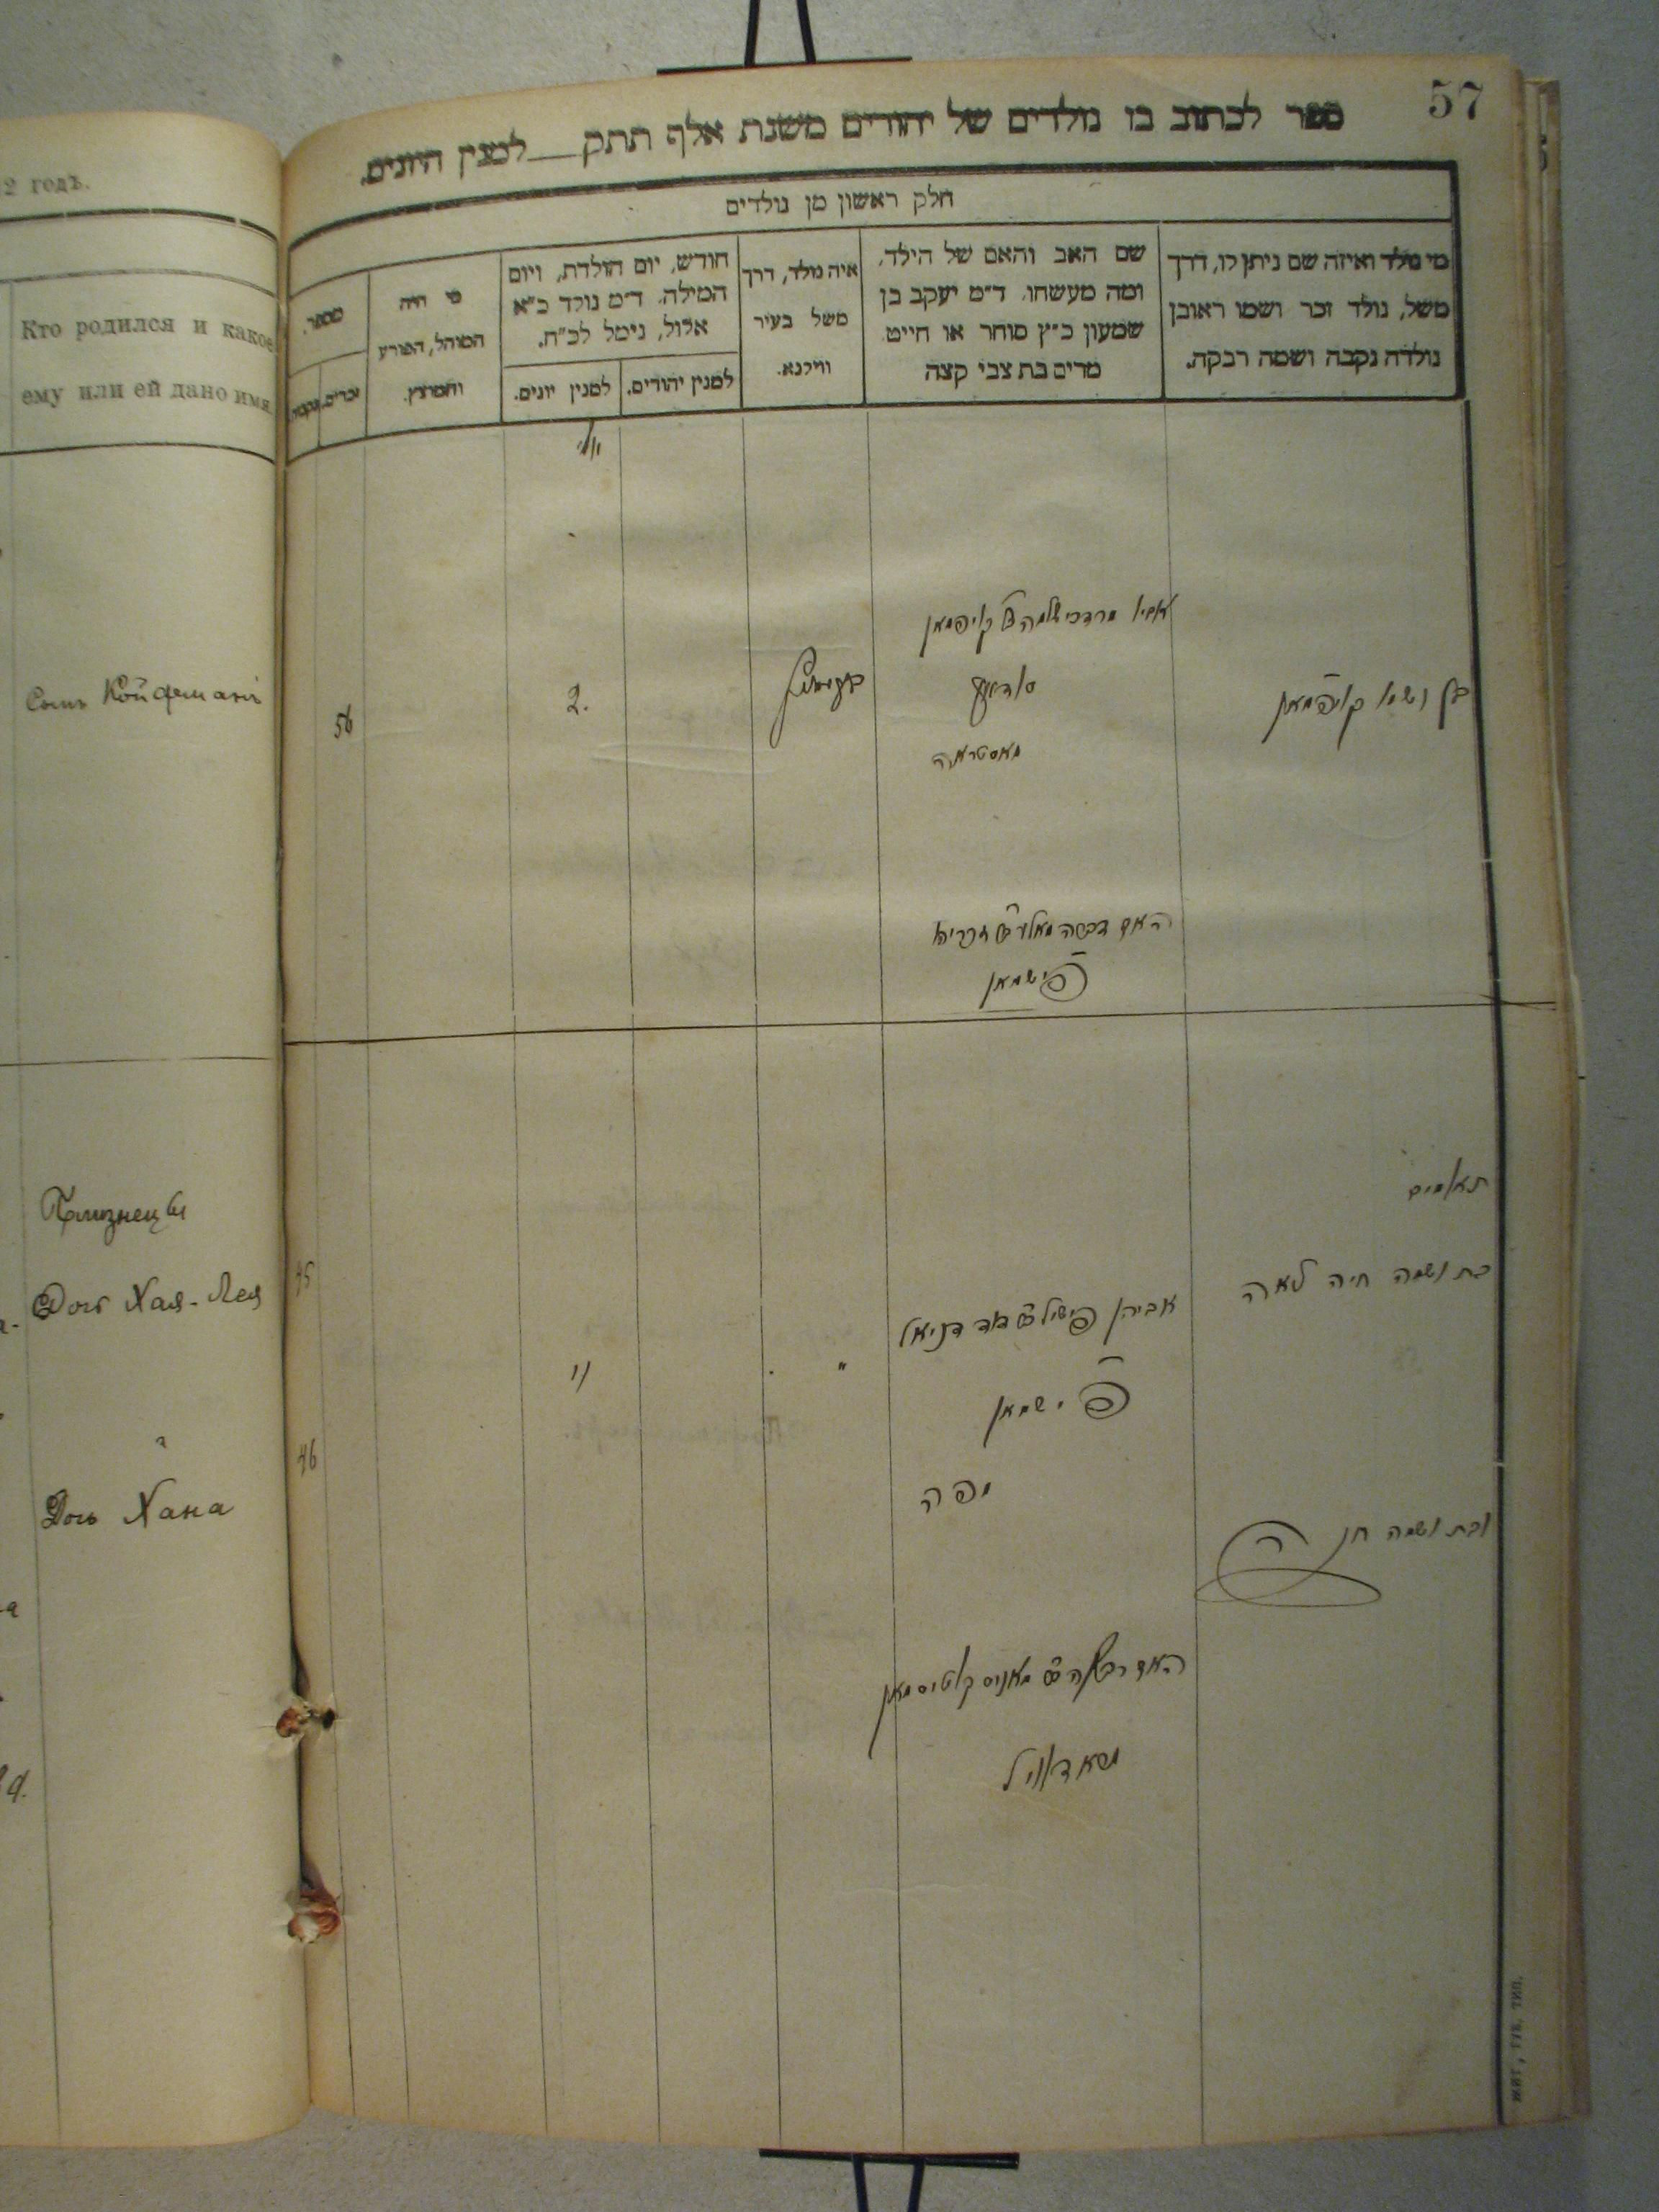 2 годъ.
Кто родился и какое
ему или ей дано имя
Сынъ Койфманъ
Близнецы
Дочь Хая-Лея
Дочь Хана
57
ספר לכתוב בו נולדים של יהודים משנת אלף תתק__למנין היונים.
חלק ראשון מן נולדים
מי נולד ואיזה שם ניתן לו, דרך
משל, נולד זכר ושמו ראובן
נולדה נקבה ושמה רבקה.
שם האב והאם של הילד,
ומה מעשהו. ד״מ יעקב בן
שמעון כ״ץ סוחר או חייט
מרים בת צבי קצה
איה נולד, דרך
משל בעיר
ווילנא.
חודש, יום הולדת, ויום
המילה. ד״מ נולד כ״א
אלול, נימל לכ״ח.
למנין יהודים.
למנין יונים.
מי היה
המוהל, הפורע
והמוצץ.
מספר.
זכרים.
נקבות.
יולי
בן ושמו קויפמאן
אביו מרדכי שלמה קויפמאן
2.
56
האם
פישמאן
תאומים
בת ושמה חיה לאה
אביהן פישיל דניאל
פישמאן
יפה
11
"
45
46
ובת ושמה חנה
האם
מאניס
ЖИТ. ГУБ. ТИП.